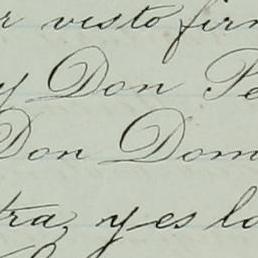 r visto firm
y Don Pe
Don Dom
tra, y es lo